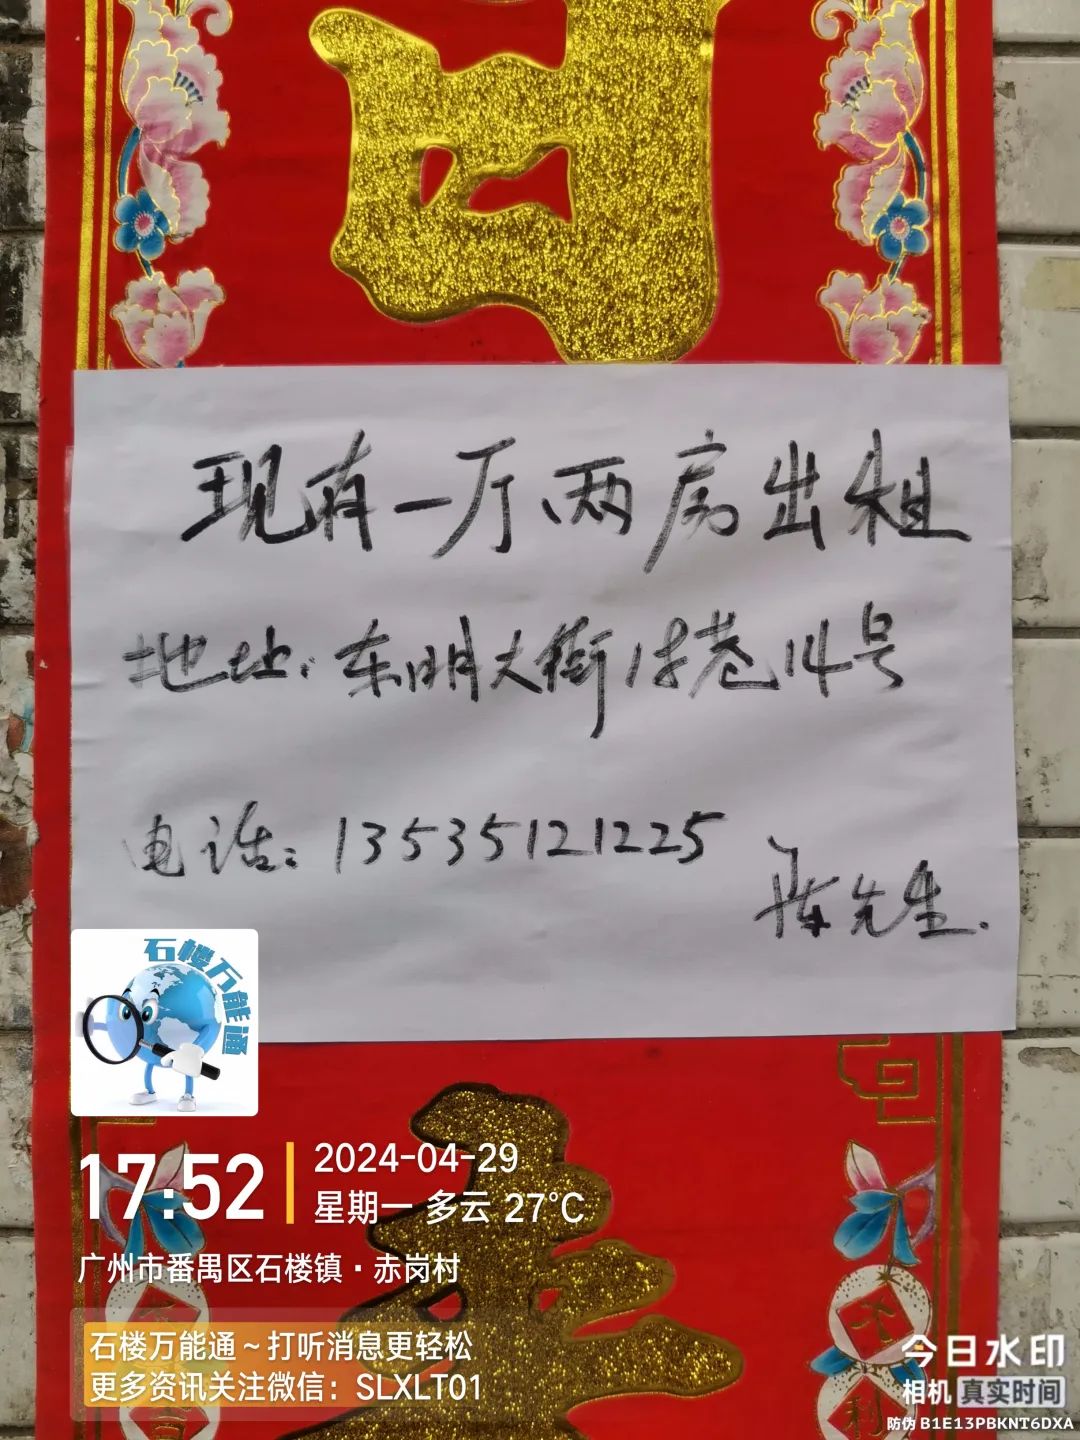 现有一厅、两房出租
地址：东明大街19巷14号
电话：13535121225
陈先生.
石楼万能通
17:52
2024-04-29
星期一 多云 27℃
广州市番禺区石楼镇·赤岗村
石楼万能通～打听消息更轻松
更多资讯关注微信：SLXLT01
今日水印
相机 真实时间
防伪 B1E13PBKNT6DXA